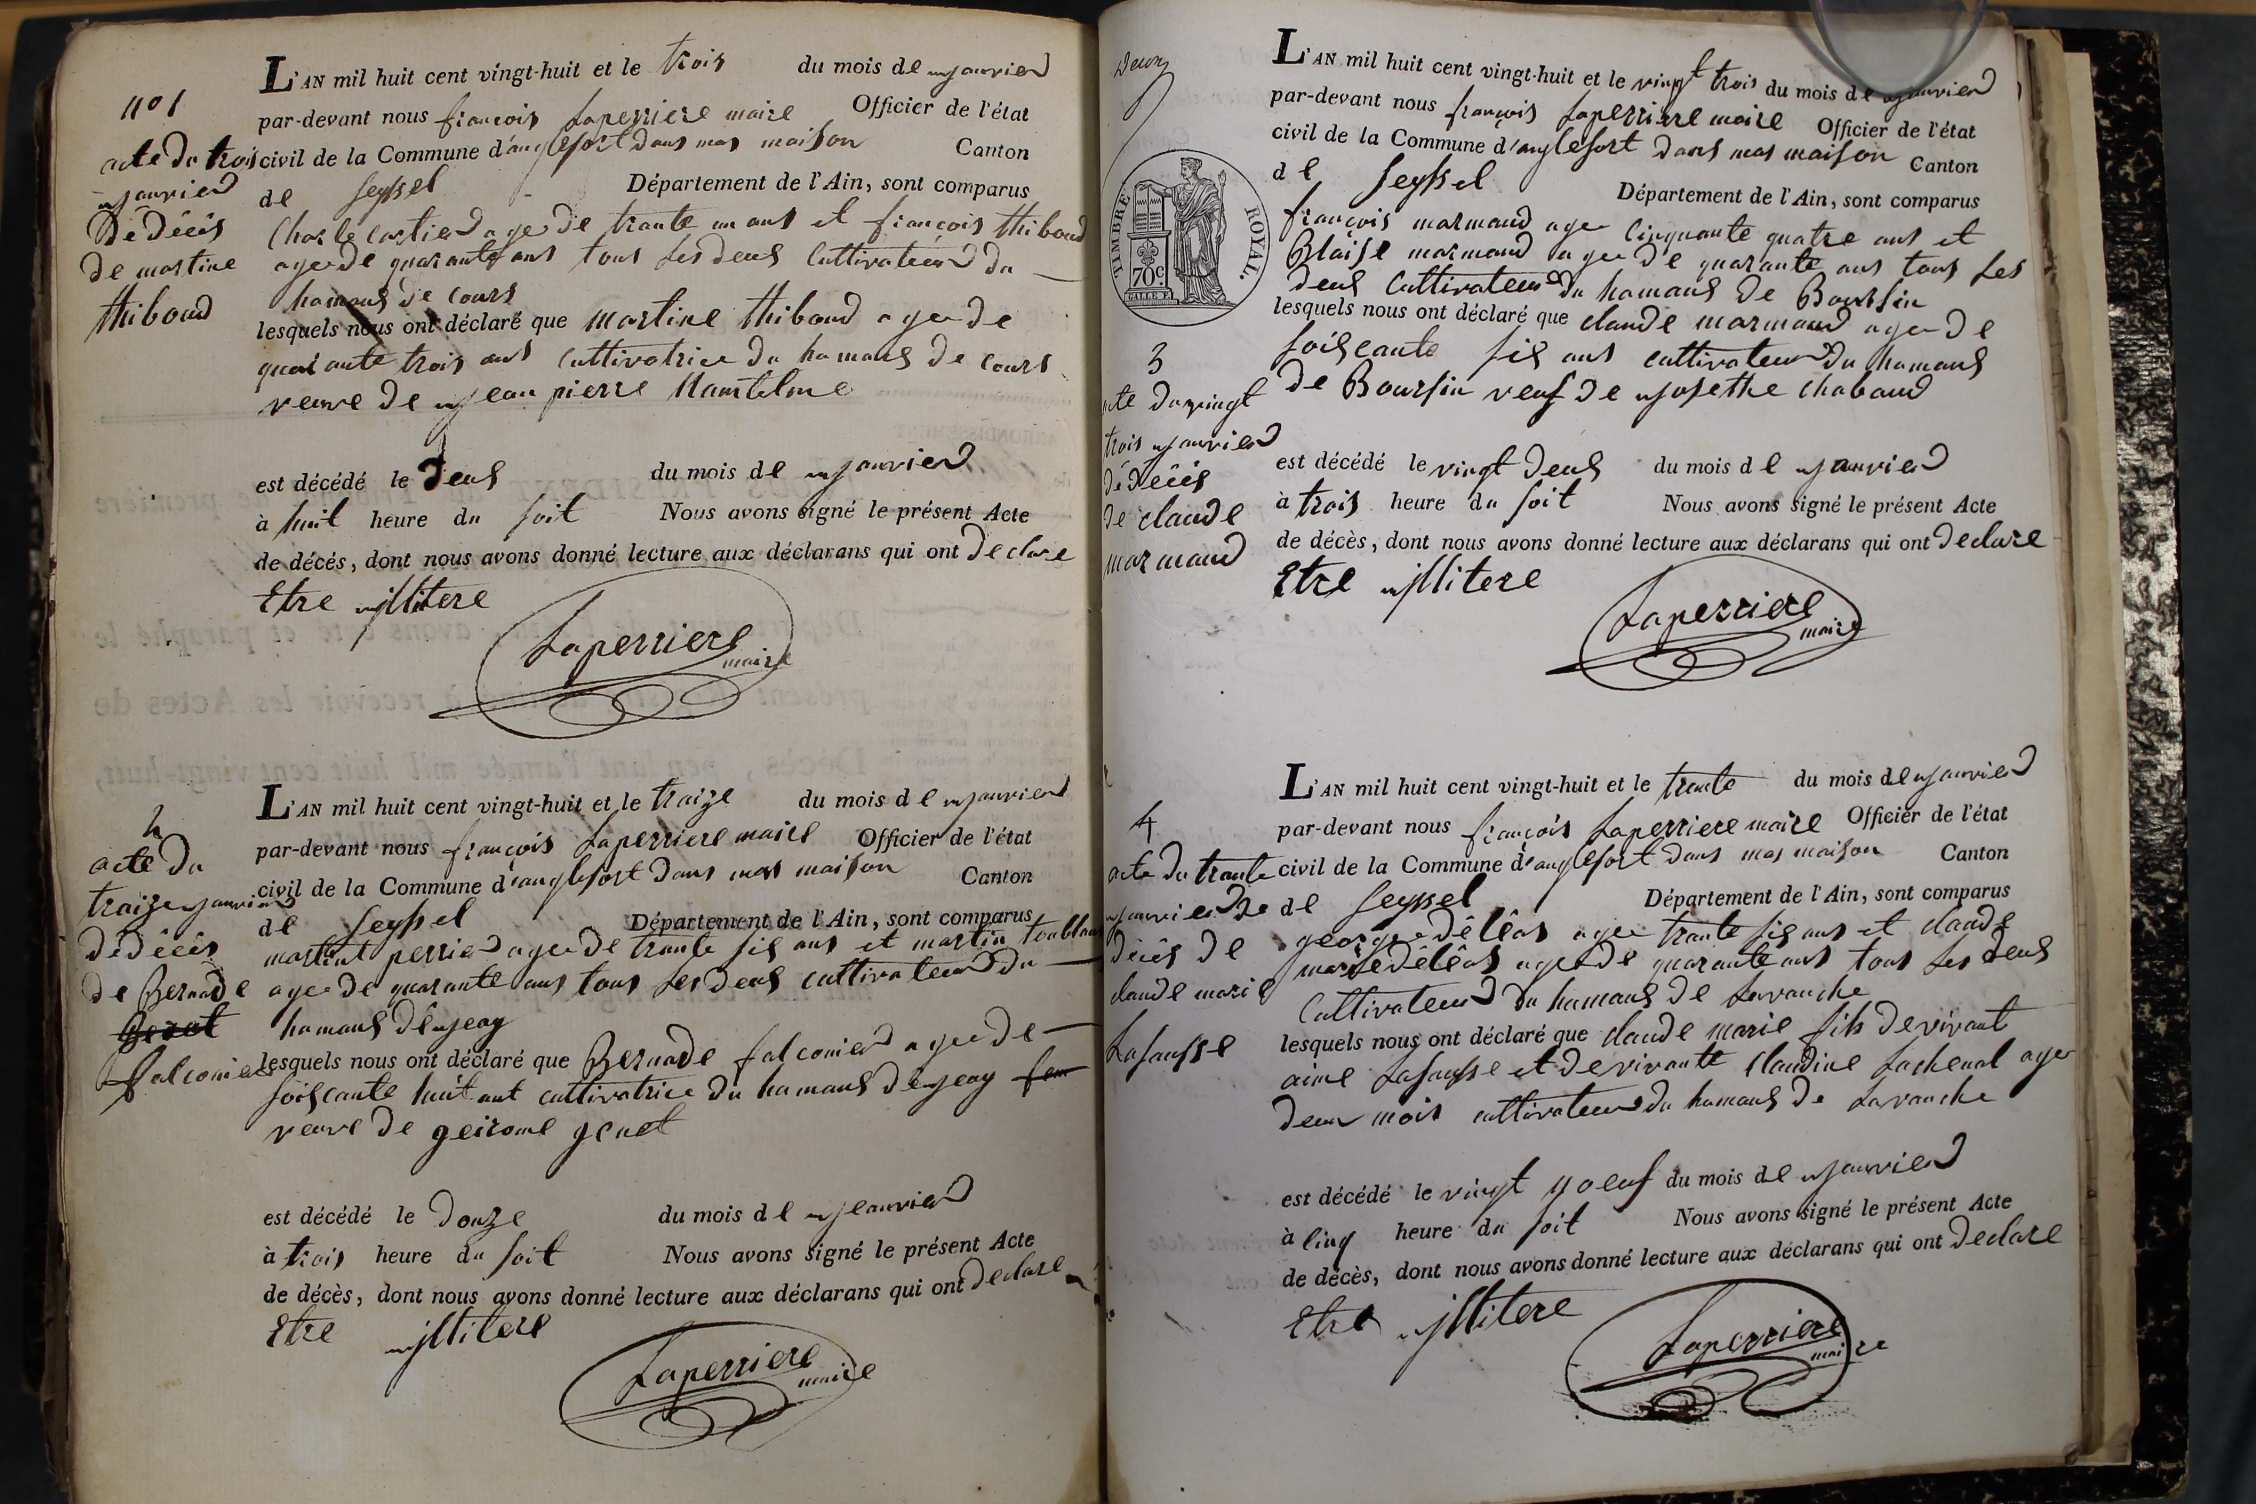 n° 1
acte du trois
janvier
dé déces
de martine
thiboud
L'AN mil huit cent vingt-huit et le trois du mois de janvier
par-devant nous françois Laperriere maire Officier de l'état
civil de la Commune d'anglefort dans mas maison Canton
de Seyssel Département de l'Ain, sont comparus
Charle cartier agee de trante un ans et françois thiboud
agee de quarante ans tous Les deus Cultivateur du
hamaus de cours
lesquels nous ont déclaré que martine thiboud agee de
quarante trois ans Cultivatrice du hamaus de cours
veuve de jean pierre
est décédé le deus du mois de janvier
à huit heure du soit Nous avons signé le présent Acte
de décès, dont nous avons donné lecture aux déclarans qui ont declare
Etre jllitere
Laperriere
maire
2
acte du
traize janvier
dé déces
de Bernade
falconier
L'AN mil huit cent vingt-huit et le traize du mois de janvier
par-devant nous françois Laperriere maire Officier de l'état
civil de la Commune d'anglefort dans mas maison Canton
de Seyssel Département de l'Ain, sont comparus
martint perrier agee de trante sis ans et martin
agee de quarante ans tous Les deus cultivateur du
hamaus dé jeay
lesquels nous ont déclaré que Bernade falconier agee de
soiscante huit ant cultivatrice du hamaus de jeay fem
veuve de geirome genet
est décédé le douze du mois de jeanvier
à trois heure du soit Nous avons signé le présent Acte
de décès, dont nous avons donné lecture aux déclarans qui ont declare
Etre jllitere
Laperriere
maire
TIMBRE ROYAL.
70 c.
3
acte du vingt
trois janvier
dé déces
de claude
marmaud
L'AN mil huit cent vingt-huit et le vingt trois du mois de janvier
par-devant nous françois Laperriere maire Officier de l'état
civil de la Commune d'anglefort dans mas maison Canton
de Seyssel Département de l'Ain, sont comparus
françois marmaud agee Cinquante quatre ans et
Blaise marmaud agee de quarante ans tous Les
deus Cultivateur du hamaus de Boursin
lesquels nous ont déclaré que claude marmaud agee de
soiscante sis ans cultivateur du hamaus
de Boursin veuf de josethe chaboud
est décédé le vingt deus du mois de janvier
à trois heure du soit Nous avons signé le présent Acte
de décès, dont nous avons donné lecture aux déclarans qui ont declare
Etre jllitere
Laperriere
maire
4
acte du trante
janvier de
déces de
claude marie
Lasausse
L'AN mil huit cent vingt-huit et le trante du mois de janvier
par-devant nous françois Laperriere maire Officier de l'état
civil de la Commune d'anglefort dans mas maison Canton
de Seyssel Département de l'Ain, sont comparus
george déléas agee trante sis ans et claude
marie déléas agee de quarante ans tous Les deus
Cultivateur du hamaus de Lavanche
lesquels nous ont déclaré que claude marie fils de vivant
aime Lasausse et de vivante Claudine Lachenal agee
deux mois cultivateur du hamaus de Lavanche
est décédé le vingt noeuf du mois de janvier
à cinq heure du soit Nous avons signé le présent Acte
de décès, dont nous avons donné lecture aux déclarans qui ont declare
Etre jllitere
Laperriere
maire